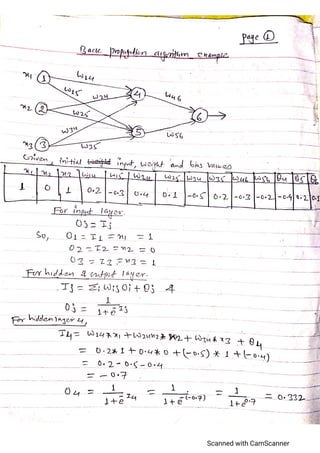 Page ①
Back propagation algorithm example
x1 1 w14
w15 4 w46
x2 2 w24 6
w25 5 w56
x3 3 w34
w35
Given, initial input, weight and bias values
x1 x2 x3 w14 w15 w24 w25 w34 w35 w46 w56 θ4 θ5 θ6
1 0 1 0.2 -0.3 0.4 0.1 -0.5 0.2 -0.3 -0.2 -0.4 0.2 0.1
For input layer
Oj = Ij
So, O1 = I1 = x1 = 1
O2 = I2 = x2 = 0
O3 = I3 = x3 = 1
For hidden & output layer.
Ij = Σi wij Oi + θj &
Oj = 1 / 1 + e^-Ij
For hidden layer 4,
I4 = w14 * x1 + w24 * x2 + w34 * x3 + θ4
= 0.2 * 1 + 0.4 * 0 + (-0.5) * 1 + (-0.4)
= 0.2 - 0.5 - 0.4
= -0.7
O4 = 1 / 1 + e^-I4 = 1 / 1 + e^-(-0.7) = 1 / 1 + e^0.7 = 0.332
Scanned with CamScanner